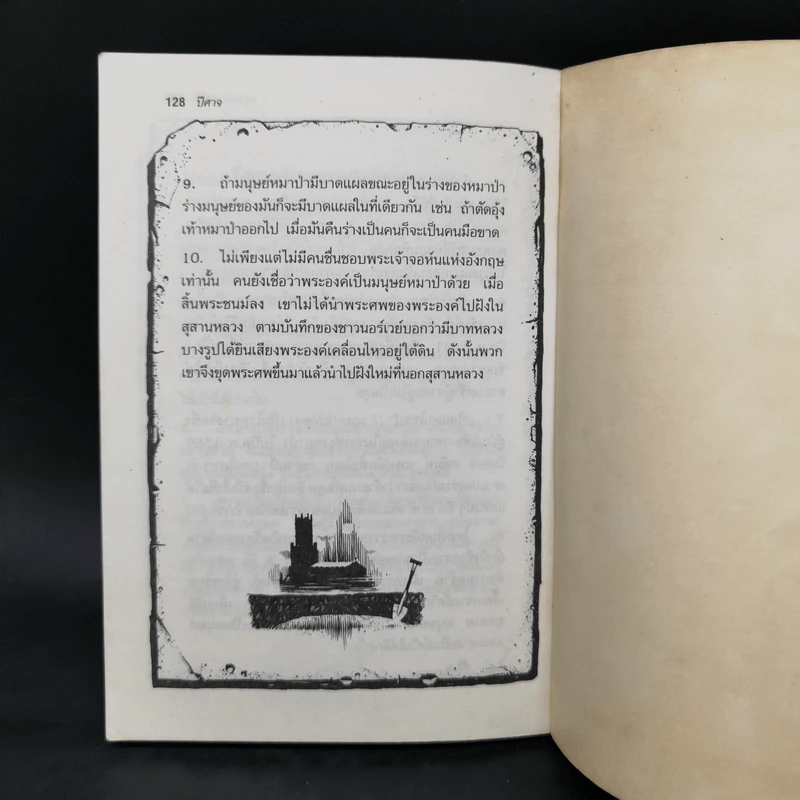 128 ปีศาจ
9. ถ้ามนุษย์หมาป่ามีบาดแผลขณะอยู่ในร่างของหมาป่า
ร่างมนุษย์ของมันก็จะมีบาดแผลในที่เดียวกัน เช่น ถ้าตัดอุ้ง
เท้าหมาป่าออกไป เมื่อมันคืนร่างเป็นคนก็จะเป็นคนมือขาด
10. ไม่เพียงแต่ไม่มีคนชื่นชอบพระเจ้าจอห์นแห่งอังกฤษ
เท่านั้น คนยังเชื่อว่าพระองค์เป็นมนุษย์หมาป่าด้วย เมื่อ
สิ้นพระชนม์ลง เขาไม่ได้นำพระศพของพระองค์ไปฝังใน
สุสานหลวง ตามบันทึกของชาวนอร์เวย์บอกว่ามีบาทหลวง
บางรูปได้ยินเสียงพระองค์เคลื่อนไหวอยู่ใต้ดิน ดังนั้นพวก
เขาจึงขุดพระศพขึ้นมาแล้วนำไปฝังใหม่ที่นอกสุสานหลวง